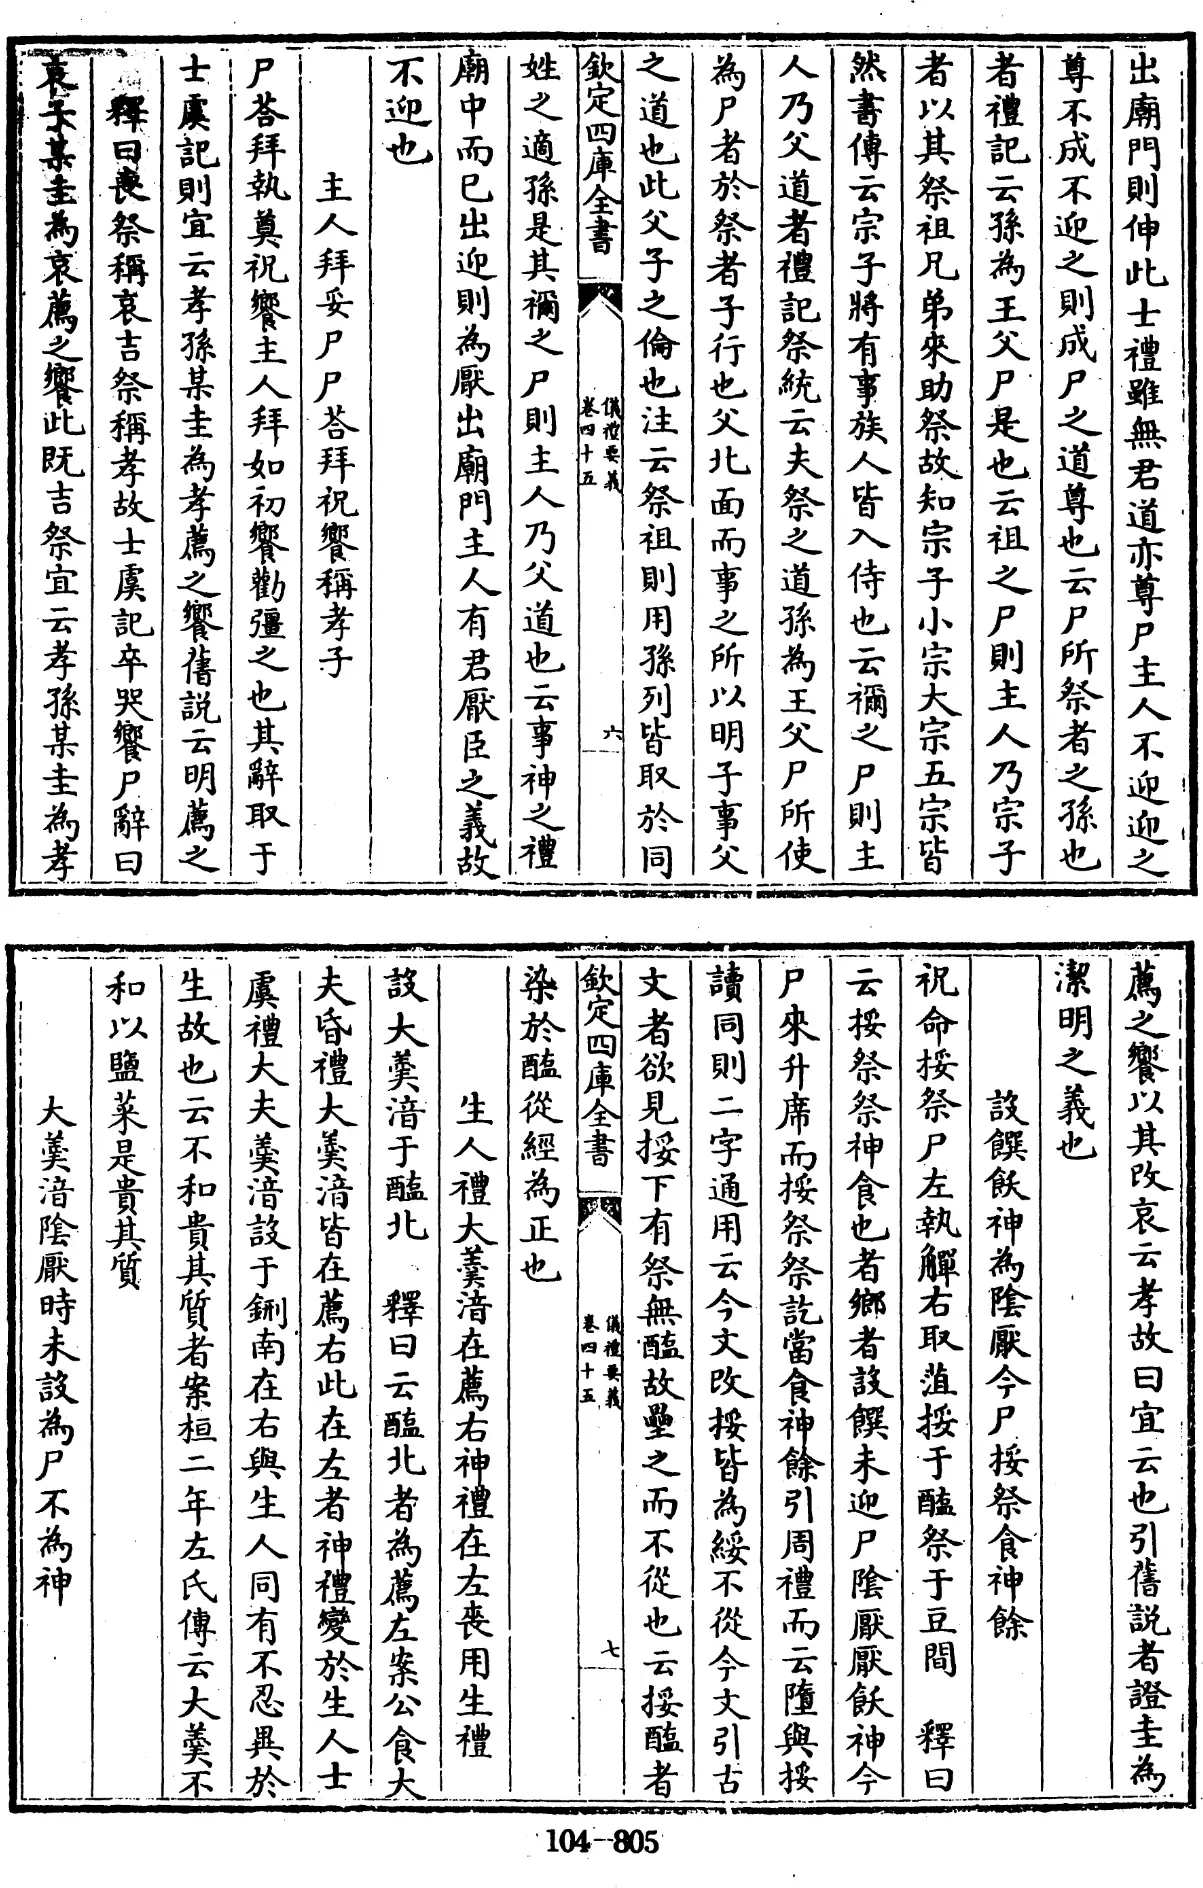 出廟門則伸此士禮雖無君道亦尊尸主人不迎迎之
尊不成不迎之則成尸之道尊也云尸所祭者之孫也
者禮記云孫為王父尸是也云祖之尸則主人乃宗子
者以其祭祖兄弟來助祭故知宗子小宗大宗五宗皆
然書傳云宗子將有事族人皆入侍也云禰之尸則主
人乃父道者禮記祭統云夫祭之道孫為王父尸所使
為尸者於祭者子行也父北面而事之所以明子事父
之道也此父子之倫也注云祭祖則用孫列皆取於同
欽定四庫全書
儀禮要義
卷四十五
六
姓之適孫是其禰之尸則主人乃父道也云事神之禮
廟中而已出迎則為厭出廟門主人有君厭臣之義故
不迎也
主人拜妥尸尸荅拜祝饗稱孝子
尸荅拜執奠祝饗主人拜如初饗勸彊之也其辭取于
士虞記則宜云孝孫某圭為孝薦之饗舊説云明薦之
釋曰喪祭稱哀吉祭稱孝故士虞記卒哭饗尸辭曰
哀子某圭為哀薦之饗此既吉祭宜云孝孫某圭為孝
薦之饗以其改哀云孝故曰宜云也引舊説者證圭為
潔明之義也
設饌飫神為陰厭今尸挼祭食神餘
祝命挼祭尸左執觶右取菹挼于醢祭于豆間 釋曰
云挼祭祭神食也者鄉者設饌未迎尸陰厭厭飫神今
尸來升席而挼祭祭訖當食神餘引周禮而云墮與挼
讀同則二字通用云今文改挼皆為綏不從今文引古
文者欲見挼下有祭無醢故壘之而不從也云挼醢者
欽定四庫全書
儀禮要義
卷四十五
七
染於醢從經為正也
生人禮大羮湆在薦右神禮在左喪用生禮
設大羮湆于醢北 釋曰云醢北者為薦左案公食大
夫昏禮大羮湆皆在薦右此在左者神禮變於生人士
虞禮大夫羮湆設于鉶南在右與生人同有不忍異於
生故也云不和貴其質者案桓二年左氏傳云大羮不
和以鹽菜是貴其質
大羮湆陰厭時未設為尸不為神
104-805